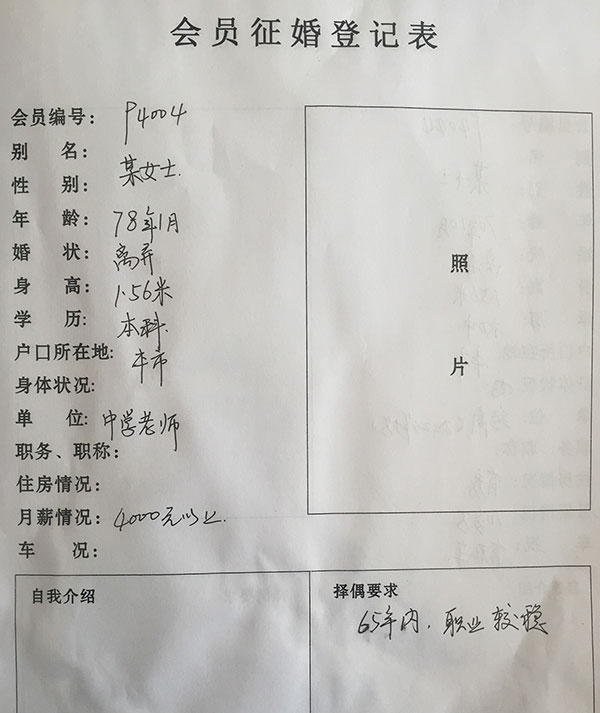 会员征婚登记表
会员编号： P4004
别 名：
某女士.
性 别：
年 龄： 78年1月
婚 状： 离异
身 高： 1.56米
学 历: 本科.
户口所在地: 本市
身体状况:
单 位: 中学老师
职务、职称：
住房情况：
月薪情况： 4000元以上.
车 况：
照
片
自我介绍
择偶要求
65年内. 职业较稳